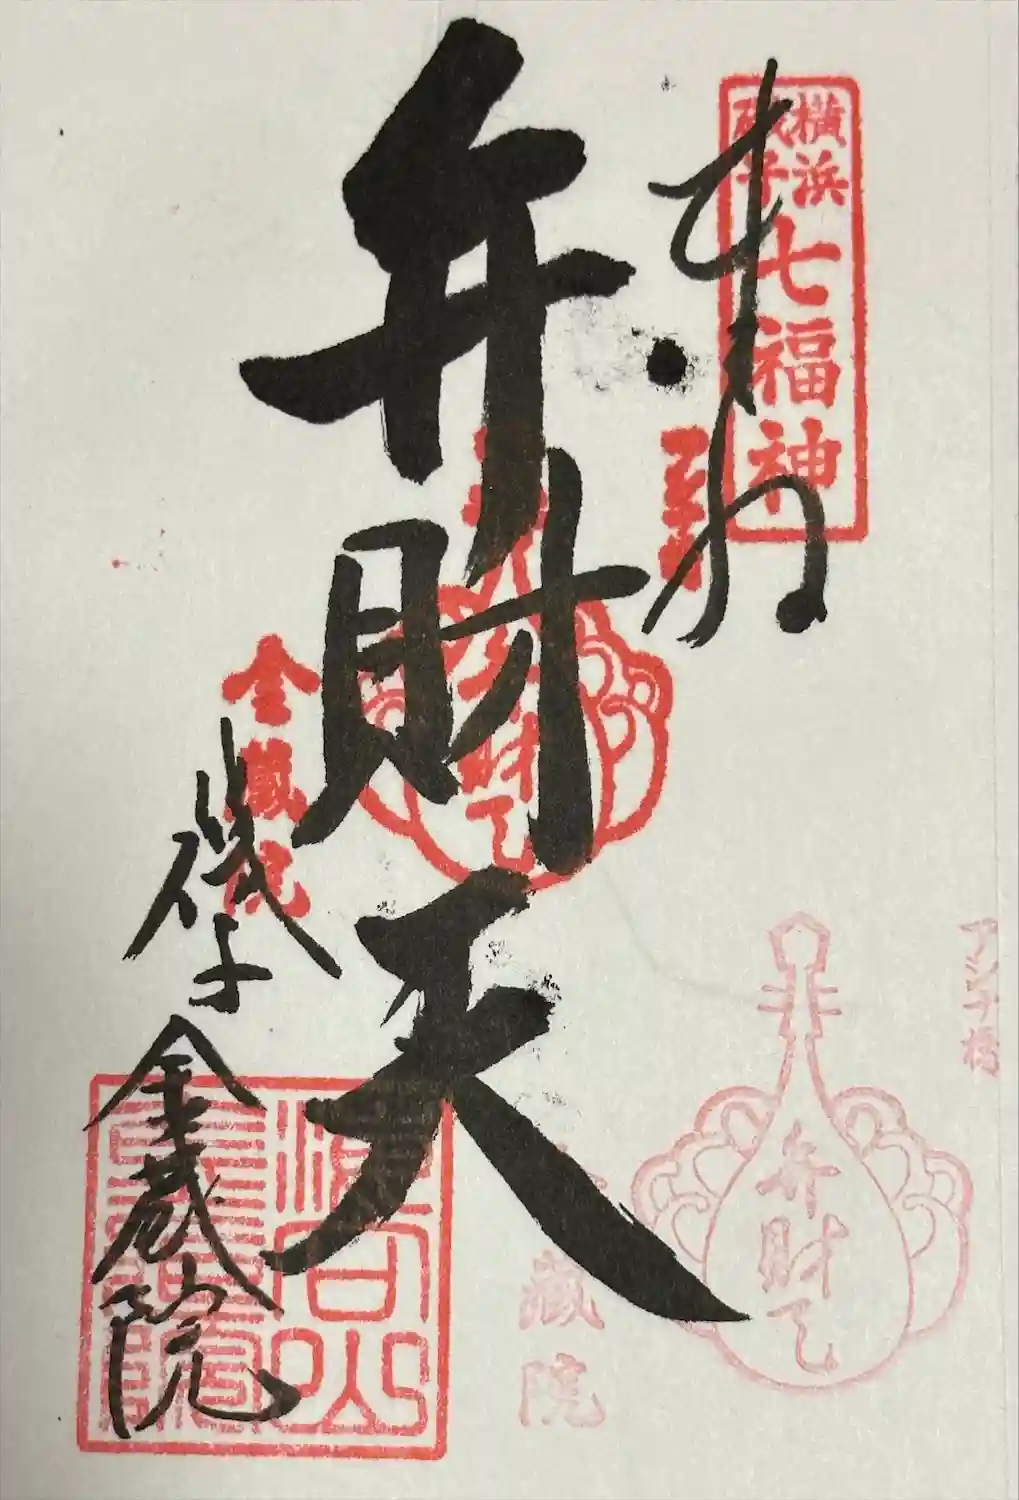 横浜
磯子
七福神
奉拝
弁財天
弁財天
金蔵院
磯子
金蔵院
弁財天
蔵院